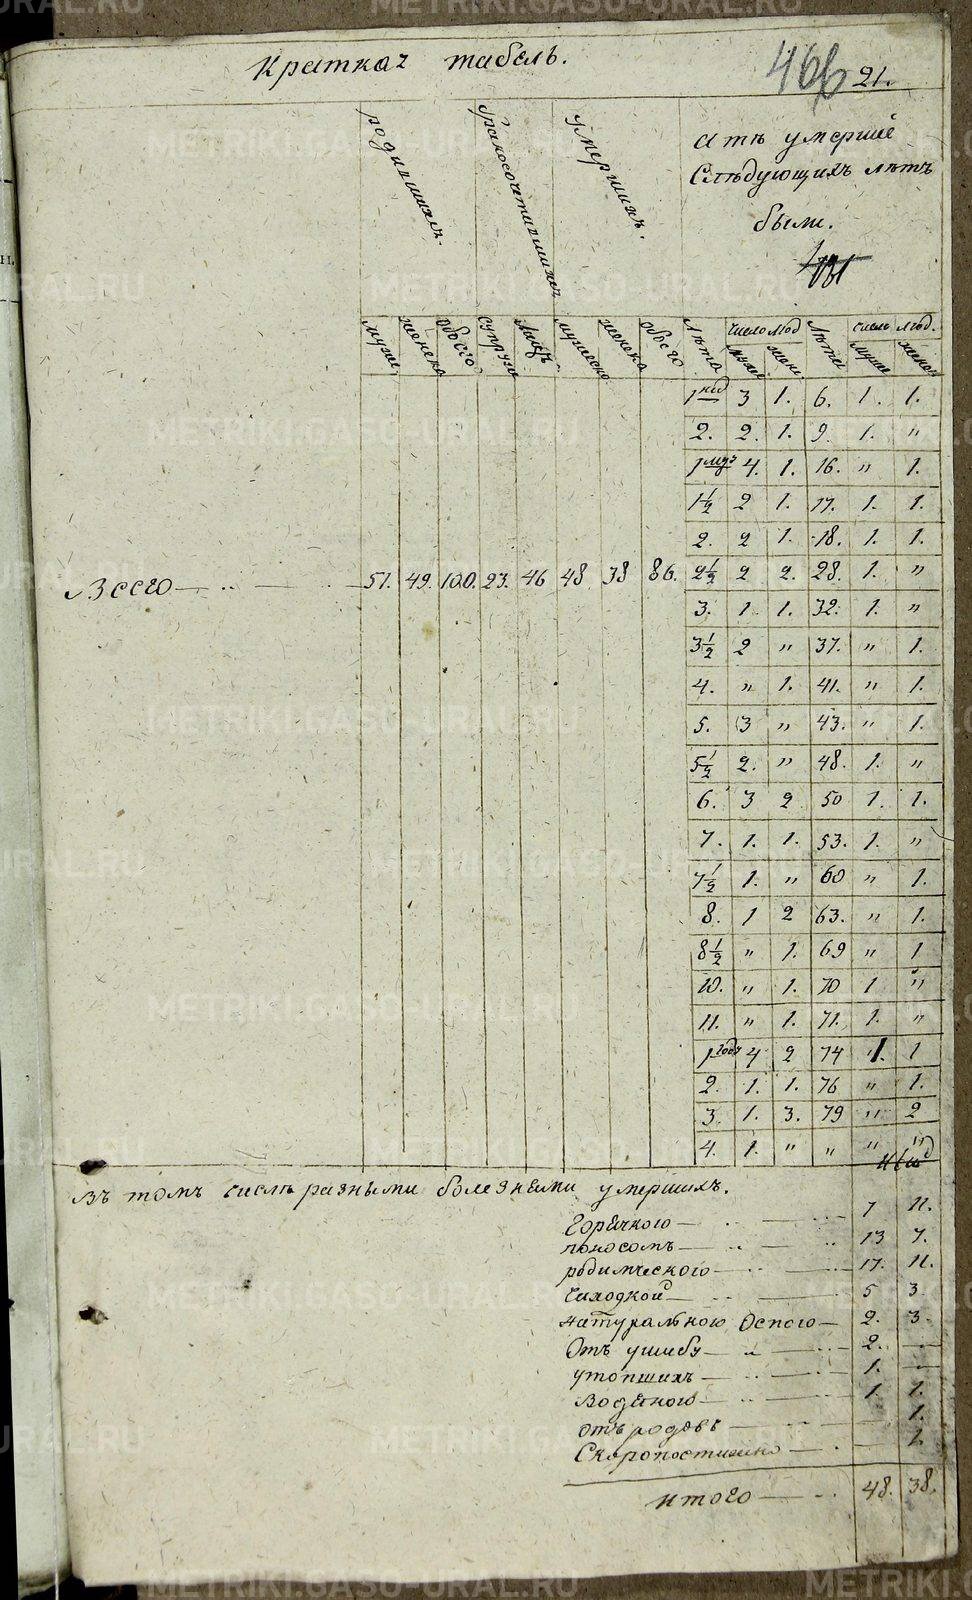 Краткая табель.
466 21.
родившихся.
бракосочетавшихся
умершихъ.
А тѣ умершіе
Слѣдующихъ лѣтъ
были.
мужес. женска обоего супруги лицъ мужеска женска обоего лѣта число люд лѣта число люд.
муже жен. муже женс.
1 нед 3 1. 6. 1. 1.
2. 2. 1. 9. 1. "
1 мѣз 4. 1. 16. " 1.
1½ 2 1. 17. 1. 1.
2. 2 1. 18. 1. 1.
Всего 51. 49. 100. 23. 46 48 38 86. 2½ 2 2. 28. 1. "
3. 1. 1. 32. 1. "
3½ 2 " 37. " 1.
4. " 1. 41. " 1.
5. 3 " 43. " 1.
5½ 2. " 48. 1. "
6. 3 2 50 1. 1.
7. 1. 1. 53. 1. "
7½ 1. " 60 " 1.
8. 1 2 63. " 1.
8½ " 1. 69 " 1
10. " 1. 70 1 "
11. " 1. 71. 1. "
1 годъ 4 2 74 1. 1
2. 1. 1. 76 " 1.
3. 1. 3. 79 " 2
4. 1. " " " "
Въ томъ числѣ разными болезнями умершихъ.
Горячкою 7 11.
поносомъ 13 7.
родимческого 17. 11.
Чахоткой 5 3
натуральною Оспою 2. 3.
Отъ ушибу 2.
утопшихъ 1.
Водяною 1 1.
отъ родовъ 1.
Скоропостижно 1.
Итого 48. 38.
METRIKI.GASU-URAL.RU